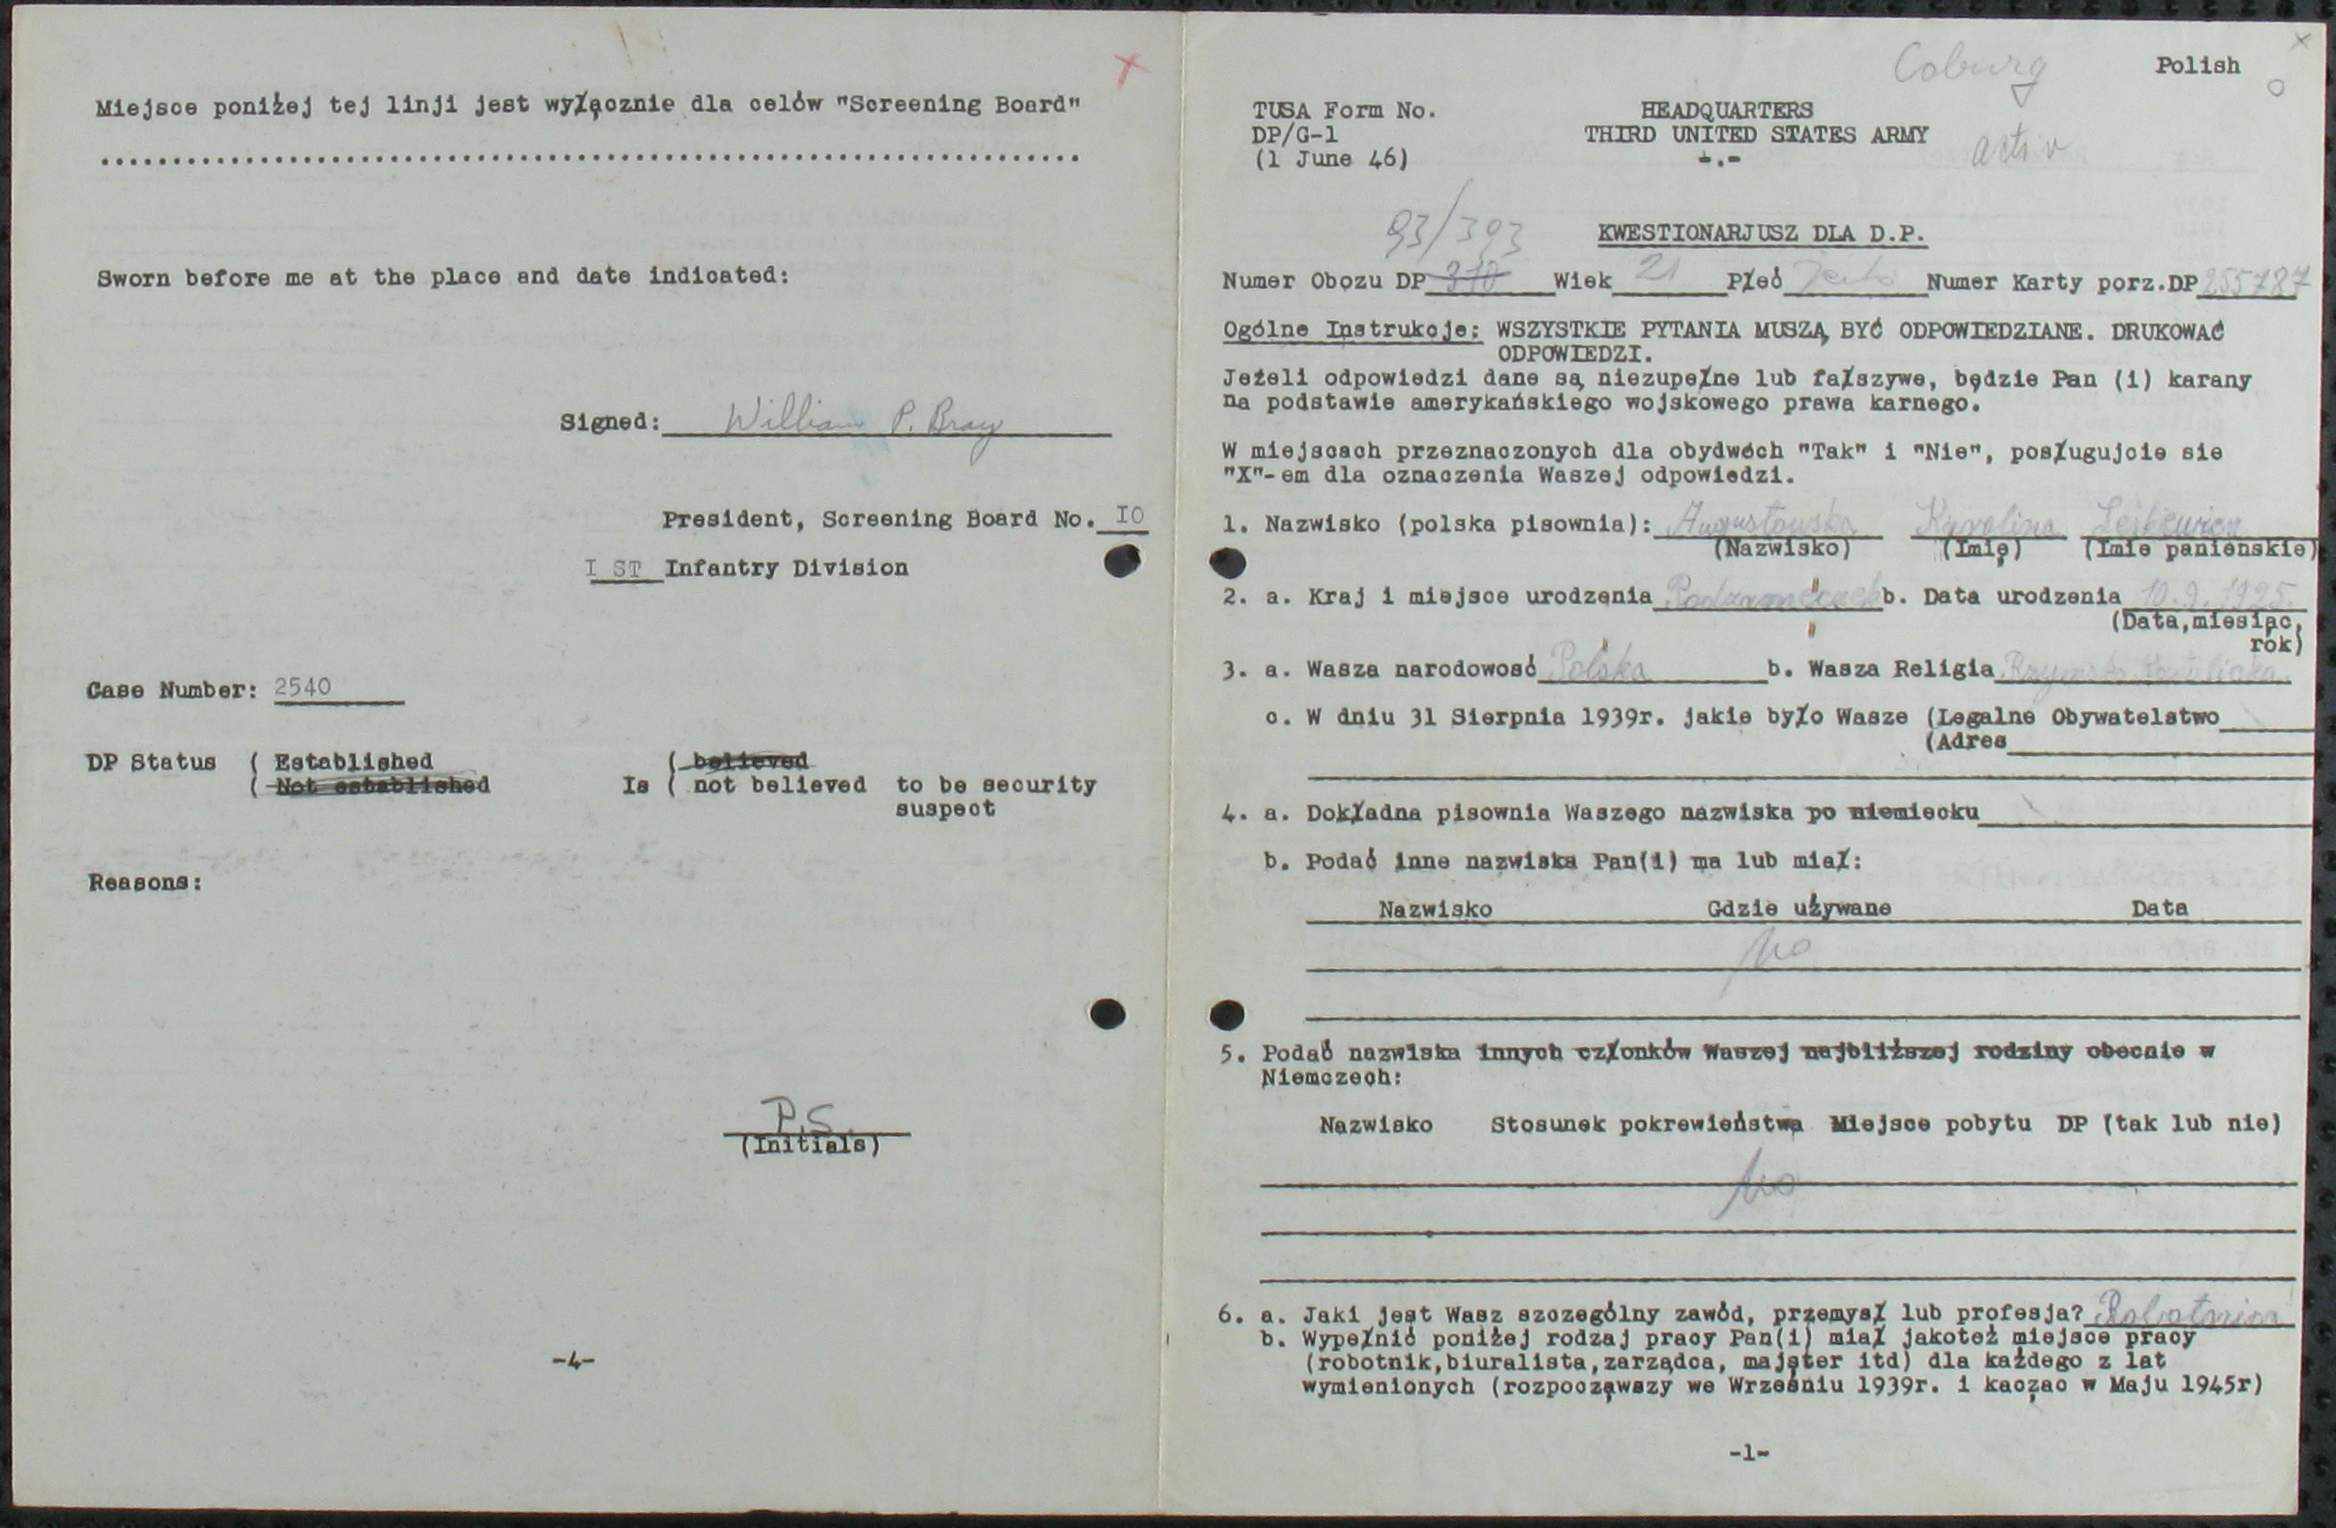 Miejsce poniżej tej linji jest wyłącznie dla celów "Screening Board"
Sworn before me at the place and date indicated:
Signed: William P. Bray
President, Screening Board No. IO
I ST Infantry Division
Case Number: 2540
DP Status ( Established
( Not established
Is ( believed
( not believed to be security
suspect
Reasons:
P.S.
(Initials)
-4-
Coburg
Polish
TUSA Form No.
DP/G-1
(1 June 46)
HEADQUARTERS
THIRD UNITED STATES ARMY
-.-
activ
93/393
KWESTIONARJUSZ DLA D.P.
Numer Obozu DP 310 Wiek 21 Płeć Numer Karty porz.DP 255787
Ogólne Instrukcje: WSZYSTKIE PYTANIA MUSZĄ BYĆ ODPOWIEDZIANE. DRUKOWAĆ
ODPOWIEDZI.
Jeżeli odpowiedzi dane są niezupełne lub fałszywe, będzie Pan (i) karany
na podstawie amerykańskiego wojskowego prawa karnego.
W miejscach przeznaczonych dla obydwóch "Tak" i "Nie", posługujcie sie
"X"-em dla oznaczenia Waszej odpowiedzi.
1. Nazwisko (polska pisownia): Augustowska Karolina
(Nazwisko) (Imię) (Imie panieńskie)
2. a. Kraj i miejsce urodzenia b. Data urodzenia 10.9.1925
(Data,miesiąc,
rok)
3. a. Wasza narodowosć Polska b. Wasza Religia Rzymsko Katolicka
c. W dniu 31 Sierpnia 1939r. jakie było Wasze (Legalne Obywatelstwo
(Adres
4. a. Dokładna pisownia Waszego nazwiska po niemiecku
b. Podać inne nazwiska Pan(i) ma lub miał:
Nazwisko Gdzie używane Data
no
5. Podać nazwiska innych członków Waszej najbliższej rodziny obecnie w
Niemczech:
Nazwisko Stosunek pokrewieństwa Miejsce pobytu DP (tak lub nie)
no
6. a. Jaki jest Wasz szczególny zawód, przemysł lub profesja? Robotnica
b. Wypełnić poniżej rodzaj pracy Pan(i) miał jakoteż miejsce pracy
(robotnik,biuralista,zarządca, majster itd) dla każdego z lat
wymienionych (rozpocząwszy we Wrześniu 1939r. i kacząc w Maju 1945r)
-1-